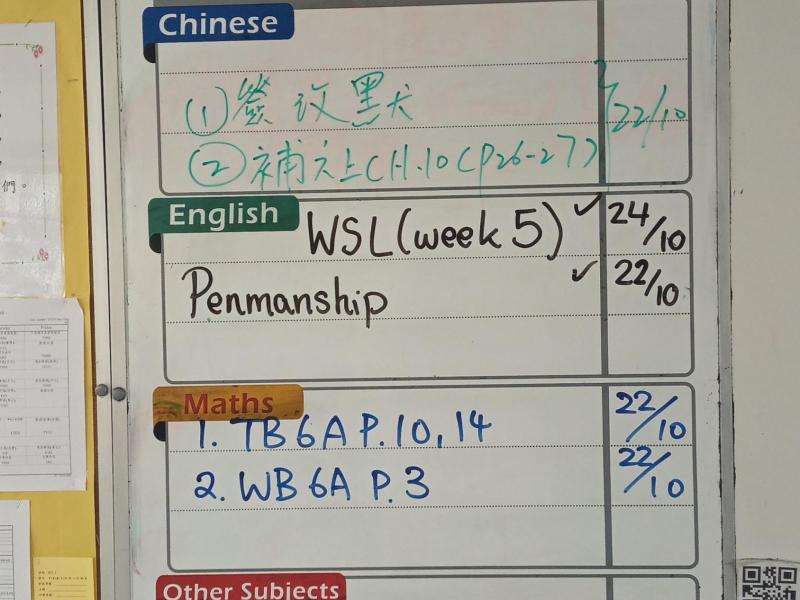 Chinese
(1) 簽改默 22/10
(2) 補交上CH.10(P26-27)
English
WSL (week 5) ✓ 24/10
Penmanship ✓ 22/10
Maths
1. TB 6A P.10, 14 22/10
2. WB 6A P.3 22/10
Other Subjects
們。